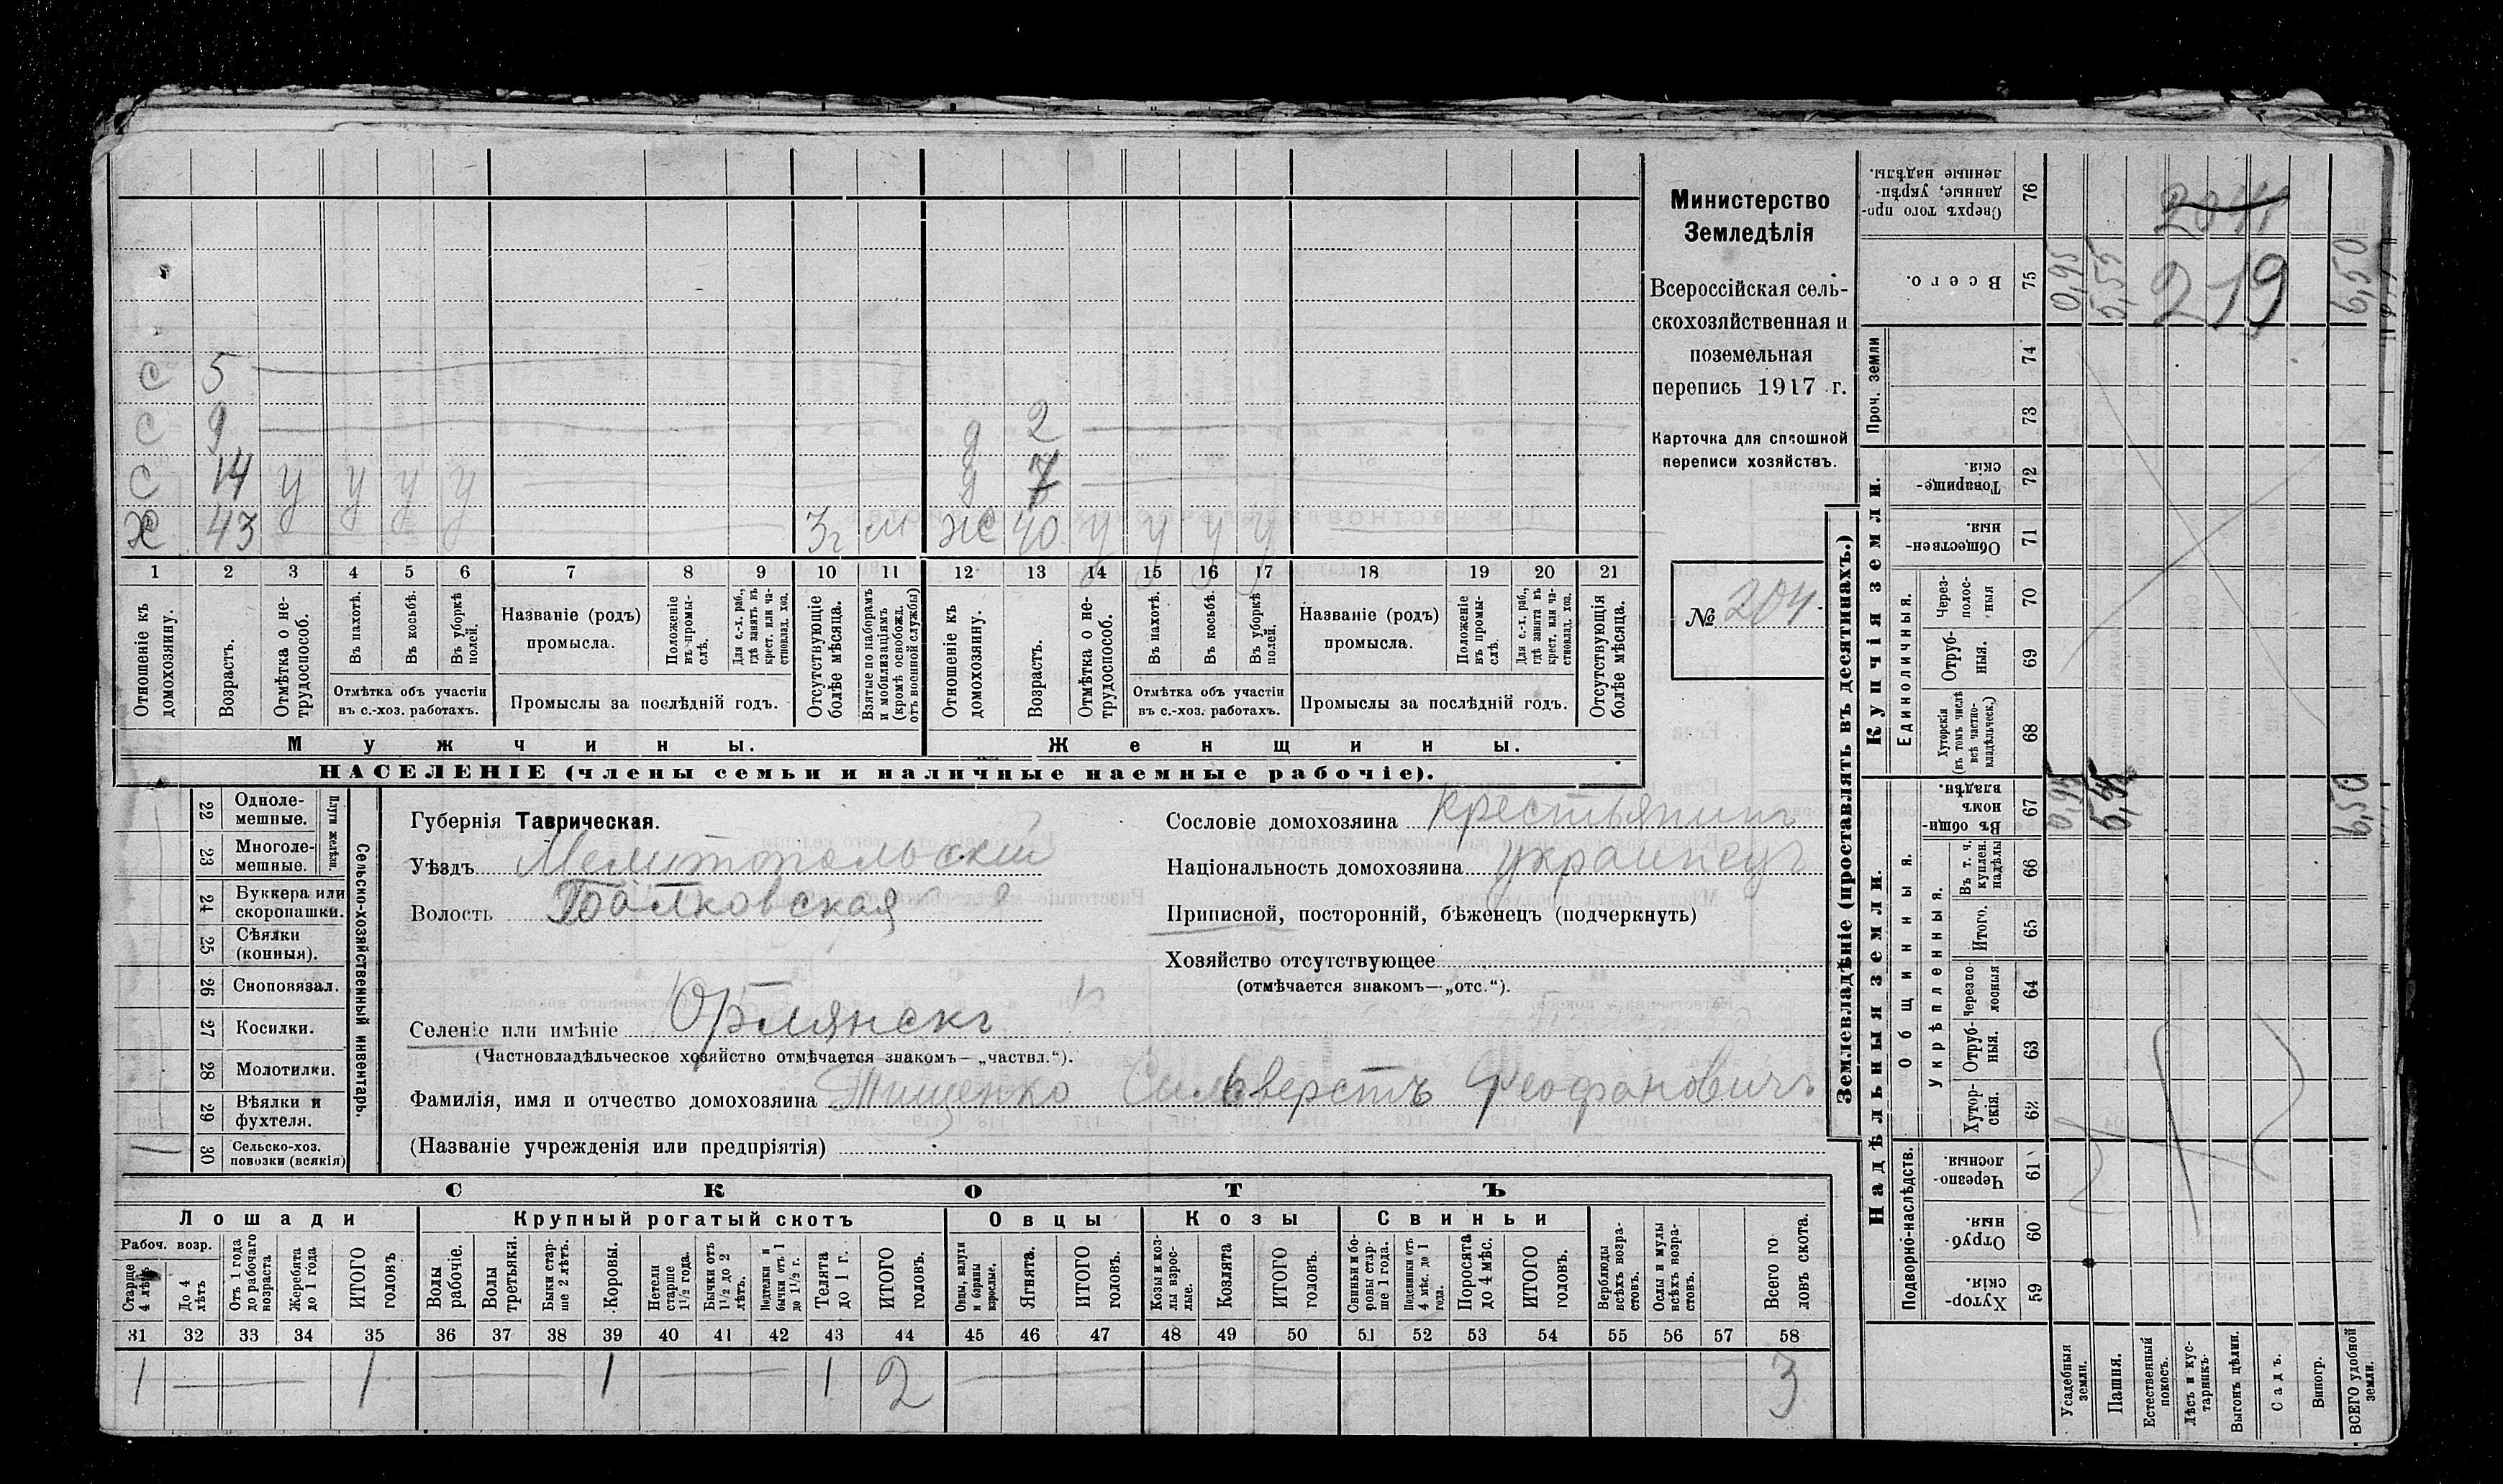 Министерство
Земледѣлія
Всероссійская сель-
скохозяйственная и
поземельная
перепись 1917 г.
Карточка для сплошной
переписи хозяйствъ.
№ 204
с 5
с 9
с 14 у у у у
х 43 3г м
д 2
д 7
ж 40 у у у у
1 2 3 4 5 6 7 8 9 10 11 12 13 14 15 16 17 18 19 20 21
Отношеніе къ домохозяину.
Возрастъ.
Отмѣтка о не-
трудоспособ.
Въ пахотѣ.
Въ косьбѣ.
Въ уборкѣ полей.
Отмѣтка объ участіи
въ с.-хоз. работахъ.
Названіе (родъ)
промысла.
Положеніе въ промы-
слѣ.
Для с.-х. раб.,
гдѣ занятъ въ
крест. или ча-
стновлад. хоз.
Промыслы за послѣдній годъ.
Отсутствующіе
болѣе мѣсяца.
Взятые по наборамъ
и мобилизаціямъ
(кромѣ освобожд.
отъ военной службы)
Отношеніе къ домохозяину.
Возрастъ.
Отмѣтка о не-
трудоспособ.
Въ пахотѣ.
Въ косьбѣ.
Въ уборкѣ полей.
Отмѣтка объ участіи
въ с.-хоз. работахъ.
Названіе (родъ)
промысла.
Положеніе въ промы-
слѣ.
Для с.-х. раб.,
гдѣ занята въ
крест. или ча-
стновлад. хоз.
Промыслы за послѣдній годъ.
Отсутствующія
болѣе мѣсяца.
Мужчины.
Женщины.
НАСЕЛЕНІЕ (члены семьи и наличные наемные рабочіе).
Сельско-хозяйственный инвентарь.
Плуги желѣзн.
22 Одноле-
мешные.
23 Многоле-
мешные.
24 Буккера или
скоропашки.
25 Сѣялки
(конныя).
26 Сноповязал.
27 Косилки.
28 Молотилки.
29 Вѣялки и
фухтеля.
30 Сельско-хоз.
повозки (всякія)
1
Губернія Таврическая.
Уѣздъ Мелитопольскій
Волость Балковская
Селеніе или имѣніе Орлянскъ
(Частновладѣльческое хозяйство отмѣчается знакомъ—„частвл.“).
Фамилія, имя и отчество домохозяина Тищенко Сильверстъ Феофановичъ
(Названіе учрежденія или предпріятія)
Сословіе домохозяина крестьянинъ
Національность домохозяина украинецъ
Приписной, посторонній, бѣженецъ (подчеркнуть)
Хозяйство отсутствующее
(отмѣчается знакомъ—„отс.“).
СКОТЪ
Лошади
Рабоч. возр.
Старше 4 лѣтъ
До 4 лѣтъ
Отъ 1 года
до рабочаго
возраста
Жеребята
до 1 года
ИТОГО
головъ
Крупный рогатый скотъ
Волы
рабочіе.
Волы
третьяки.
Быки стар-
ше 2 лѣтъ.
Коровы.
Нетели
старше
1 1/2 года.
Бычки отъ
1 1/2 до 2
лѣтъ.
Подтелки и
бычки отъ 1
до 1 1/2 г.
Телята
до 1 г.
ИТОГО
головъ.
Овцы
Овцы, валухи
и бараны
взрослые.
Ягнята.
ИТОГО
головъ.
Козы
Козы и коз-
лы взрос-
лые.
Козлята
ИТОГО
головъ.
Свиньи
Свиньи и бо-
ровы стар-
ше 1 года.
Подсвинки отъ
4 мѣс. до 1
года.
Поросята
до 4 мѣс.
ИТОГО
головъ.
Верблюды
всѣхъ возра-
стовъ.
Ослы и мулы
всѣхъ возра-
стовъ.
Всего го-
ловъ скота.
31 32 33 34 35 36 37 38 39 40 41 42 43 44 45 46 47 48 49 50 51 52 53 54 55 56 57 58
1 1 1 1 2 3
Землевладѣніе (проставлять въ десятинахъ.)
Сверхъ того про-
данные, укрѣп-
ленные надѣлы.
76
Всего.
75 0,95 5,55 6,50
2044
219
Проч. земли
74
73
Купчія земли.
Товарище-
скія.
72
Обществен-
ныя.
71
Единоличныя.
Через-
полос-
ныя
70
Отруб-
ныя.
69
Хуторскія
(въ томъ числѣ
всѣ частно-
владѣльческ.)
68
Надѣльныя земли.
Общинныя.
Въ общин-
номъ
владѣн.
67 0,95 6,50
Укрѣпленныя.
Въ т. ч.
куплен.
надѣлы
66
Итого.
65
Черезпо-
лосныя
64
Отруб-
ныя.
63
Хутор-
скія.
62
Подворно-наслѣдств.
Черезпо-
лосныя
61
Отруб-
ныя.
60
Хутор-
скія.
59
Усадебныя
земли.
Пашня.
Естественный
покосъ.
Лѣсъ и кус-
тарникъ.
Выгонъ цѣлин.
Садъ.
Виногр.
ВСЕГО удобной
земли.